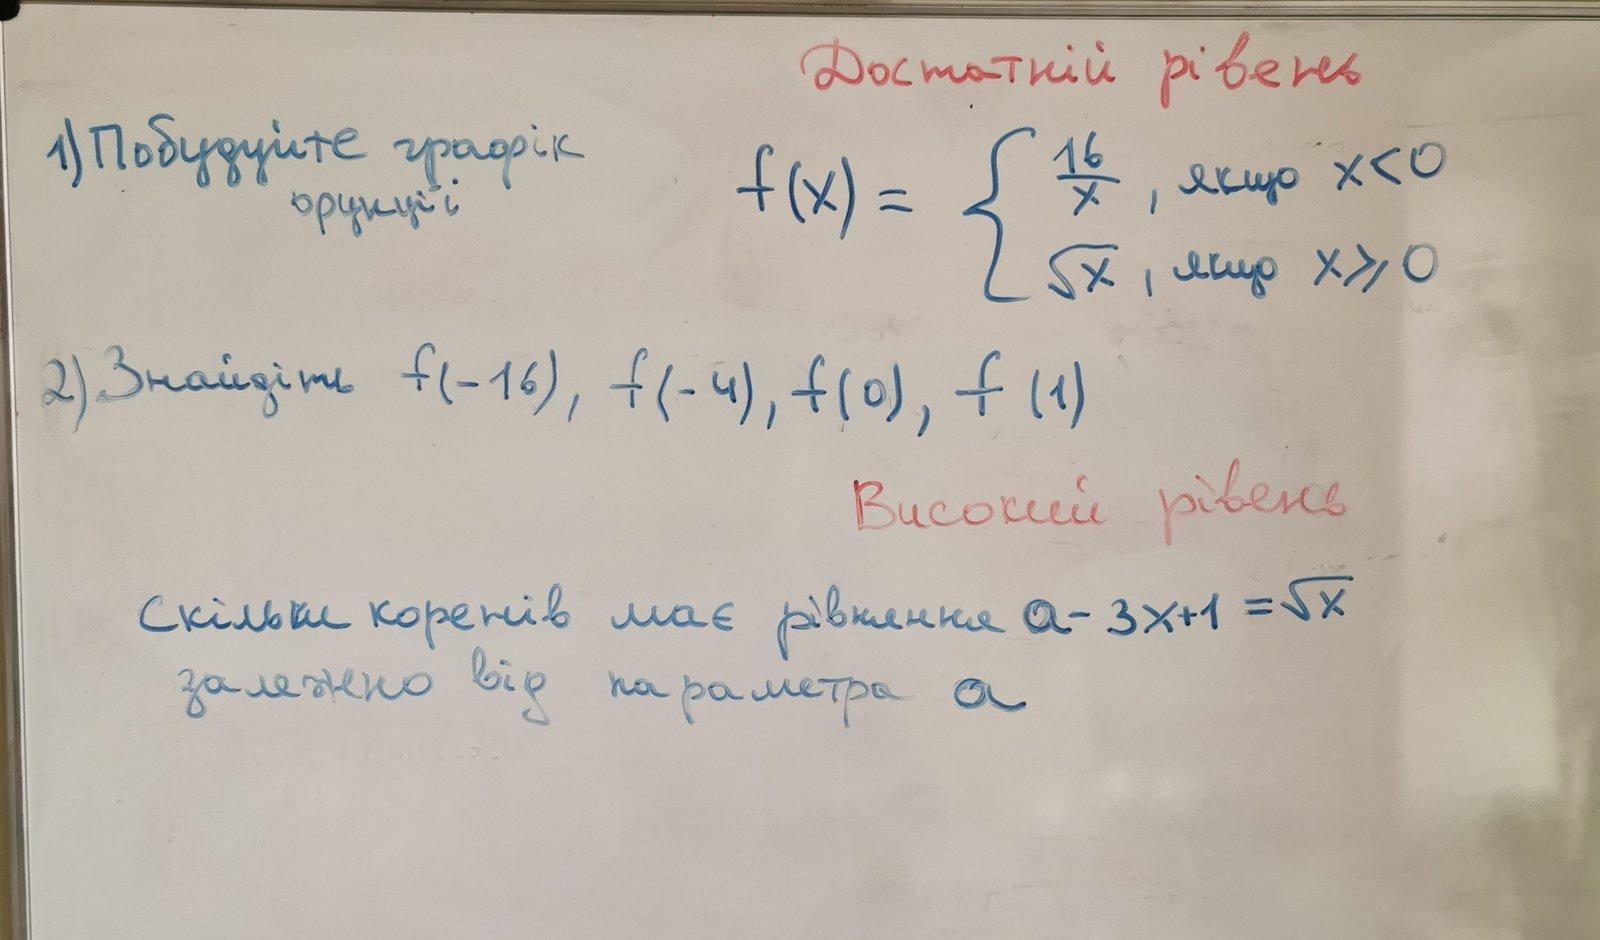 Достатній рівень
1) Побудуйте графік функції f(x) = { 16/x , якщо x<0
√x , якщо x⩾0
2) Знайдіть f(-16), f(-4), f(0), f(1)
Високий рівень
Скільки коренів має рівняння a-3x+1=√x
залежно від параметра a